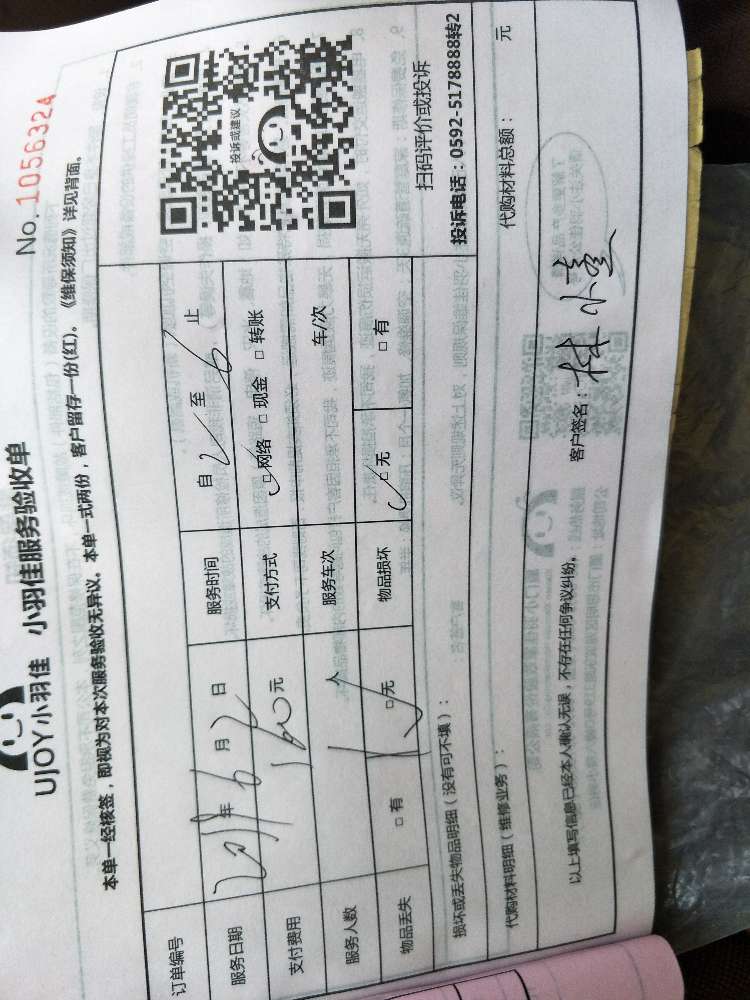 UJOY小羽佳 小羽佳服务验收单
No. 1056324
本单一经核签，即视为对本次服务验收无异议。本单一式两份，客户留存一份(红)。《维保须知》详见背面。
订单编号
服务日期 年 6 月 2 日 服务时间 自 2 至 6 止
支付费用 元 支付方式 □网络 □现金 □转账
服务人数 1 人 服务车次 车/次
物品丢失 □有 □无 物品损坏 □无 □有
投诉或建议
扫码评价或投诉
投诉电话：0592-5178888转2
损坏或丢失物品明细（没有可不填）：
代购材料明细（维修业务）： 代购材料总额： 元
以上填写信息已经本人确认无误，不存在任何争议纠纷。 客户签名： 林小